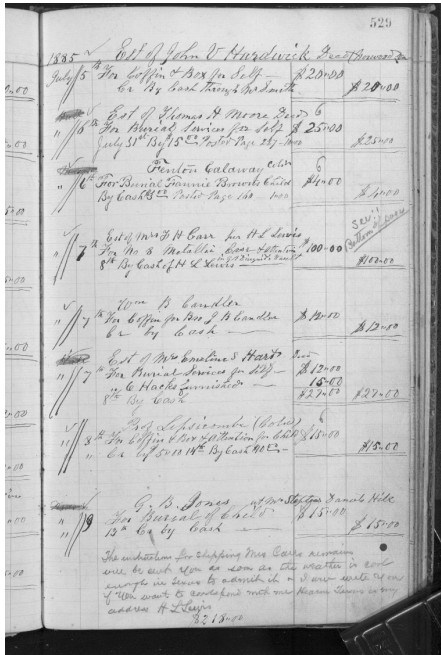 529
1885 Est of John V Hardwick Decd
July 5th For Coffin & Box for Self $20-00
Cr By Cash through Mr Smith $20-00
Est of Thomas H Moore Decd 6
" 6th For Burial Services for Self $25-00
July 31st By 15 00 Posted Page 257- 10 00 $25-00
Fenton Calaway Cold 6
6th For Burial Fannie Browns Child $4-00
By Cash Posted Page 160 $4-00
Est of Mrs F H Carr per H L Lewis
" 7th For No 8 Metallic Case & Attention $100-00
8th By Cash of H L Lewis $100-00
See
Bottom of page
Wm B Candler
" 7th For Coffin for Bro J B Candler $12-00
Cr by Cash $12-00
Est of Mrs Emeline S Hart Decd
" 7th For Burial Services for Self $12-00
" 6 Hacks furnished 15-00
8th By Cash $27-00 $27-00
Prof Lipsicombe (Cold) 6
" 8th For Coffin & Box & Attention for Child $15-00
" Cr by 5 00 14th By Cash $10 $15-00
G. B. Jones at Mr Steptoes Daniels Hill
" 9 For Burial of Child $15-00
" 13th Cr by Cash $15-00
The instructions for shipping Mrs Carrs remains
will be sent you as soon as the weather is cool
enough in Texas to admit it
if you want to correspond with me Hearne Texas is my
address H L Lewis
$218-00